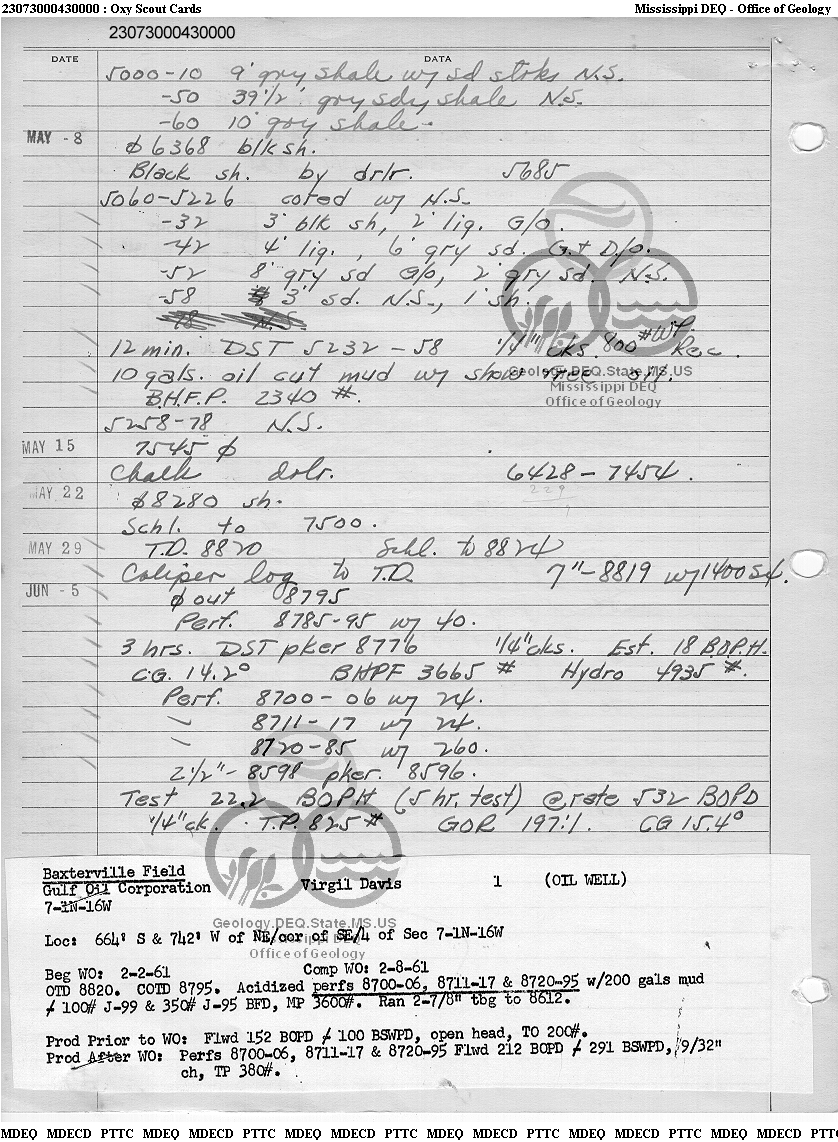 23073000430000 : Oxy Scout Cards Mississippi DEQ - Office of Geology
23073000430000
DATE DATA
5000-10 9' gry shale w/ sd strks N.S.
-50 39 1/2' gry sdy shale N.S.
-60 10' gry shale.
MAY - 8
ϕ 6368 blk sh.
Black sh. by drlr. 5685
5060-5226 cored w/ N.S.
-32 3' blk sh, 2' lig. G/O.
-42 4' lig., 6' gry sd. G.+ D/O.
-52 8' gry sd G/O, 2' gry sd. N.S.
-58 3' sd. N.S., 1' sh.
12 min. DST 5232-58 1/4" cks. 800 # WP. Rec.
10 gals. oil cut mud w/ show free oil.
B.H.F.P. 2340 #.
5258-78 N.S.
MAY 15 7545 ϕ
Chalk drlr. 6428-7454.
229
MAY 22 ϕ 8280 sh.
Schl. to 7500.
MAY 29 T.D. 8820 Schl. to 8824
Caliper log to T.D. 7"-8819 w/1400 sx.
JUN - 5 ϕ out 8795
Perf. 8785-95 w/ 40.
3 hrs. DST pker 8776 1/4" cks. Est. 18 B.O.P.H.
CG. 14.2° BHPF 3665 # Hydro 4935 #.
Perf. 8700-06 w/ 24.
8711-17 w/ 24.
8720-85 w/ 260.
2 1/2"- 8598 pker. 8596.
Test 22.2 BOPH (5 hr. test) @ rate 532 BOPD
1/4" ck. T.P. 825 # GOR 197:1. CG 15.4°
Geology.DEQ.State.MS.US
Mississippi DEQ
Office of Geology
Baxterville Field
Gulf Oil Corporation Virgil Davis 1 (OIL WELL)
7-1N-16W
Geology.DEQ.State.MS.US
Mississippi DEQ
Office of Geology
Loc: 664' S & 742' W of NE/cor of SE/4 of Sec 7-1N-16W
Beg WO: 2-2-61 Comp WO: 2-8-61
OTD 8820. COTD 8795. Acidized perfs 8700-06, 8711-17 & 8720-95 w/200 gals mud
≠ 100# J-99 & 350# J-95 BFD, MP 3600#. Ran 2-7/8" tbg to 8612.
Prod Prior to WO: Flwd 152 BOPD ≠ 100 BSWPD, open head, TO 200#.
Prod After WO: Perfs 8700-06, 8711-17 & 8720-95 Flwd 212 BOPD ≠ 291 BSWPD, 9/32"
ch, TP 380#.
MDEQ MDECD PTTC MDEQ MDECD PTTC MDEQ MDECD PTTC MDEQ MDECD PTTC MDEQ MDECD PTTC MDEQ MDECD PTT